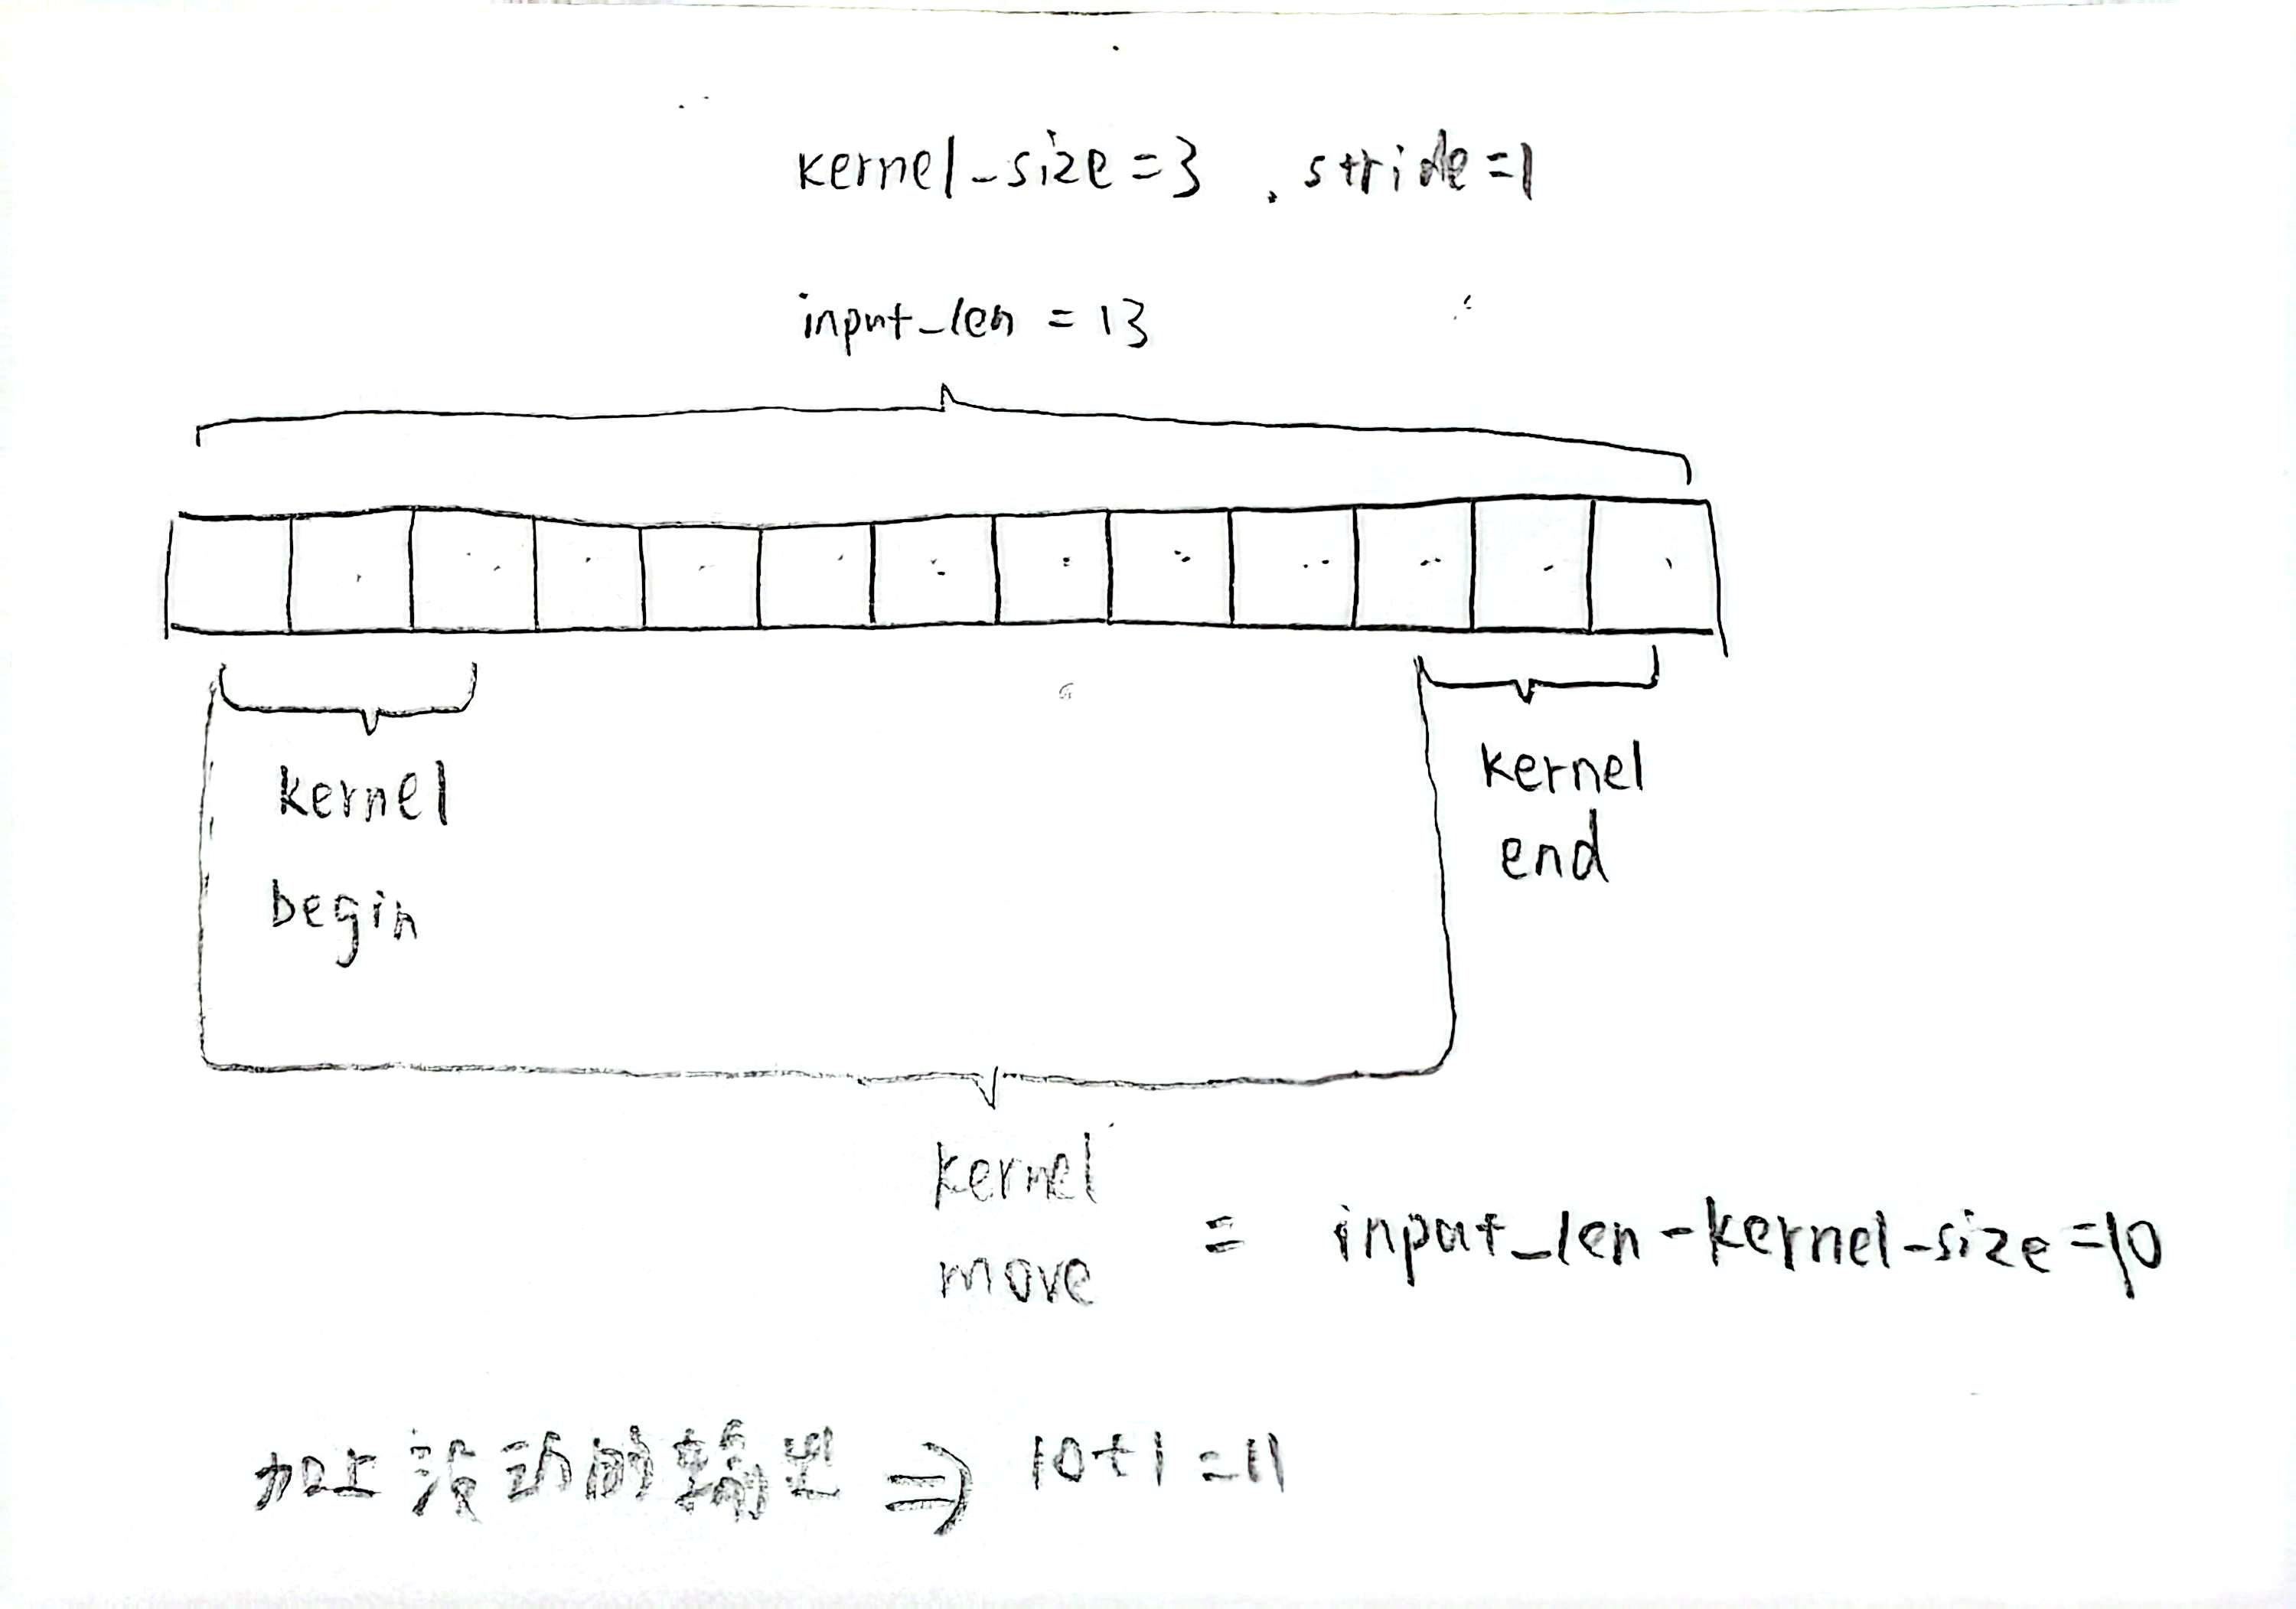 kernel-size=3 , stride=1
input-len = 13
kernel
begin
kernel
end
kernel
move = input-len-kernel-size=10
加上没动的输出 ⇒ 10+1=11